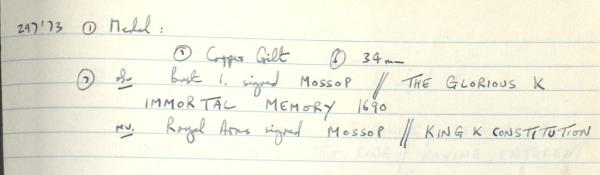 247'73 ① Medal :
⑤ Copper Gilt ⑥ 34mm
⑦ obv. bust l. signed MOSSOP // THE GLORIOUS K
IMMORTAL MEMORY 1690
rev. Royal Arms signed MOSSOP // KING K CONSTITUTION